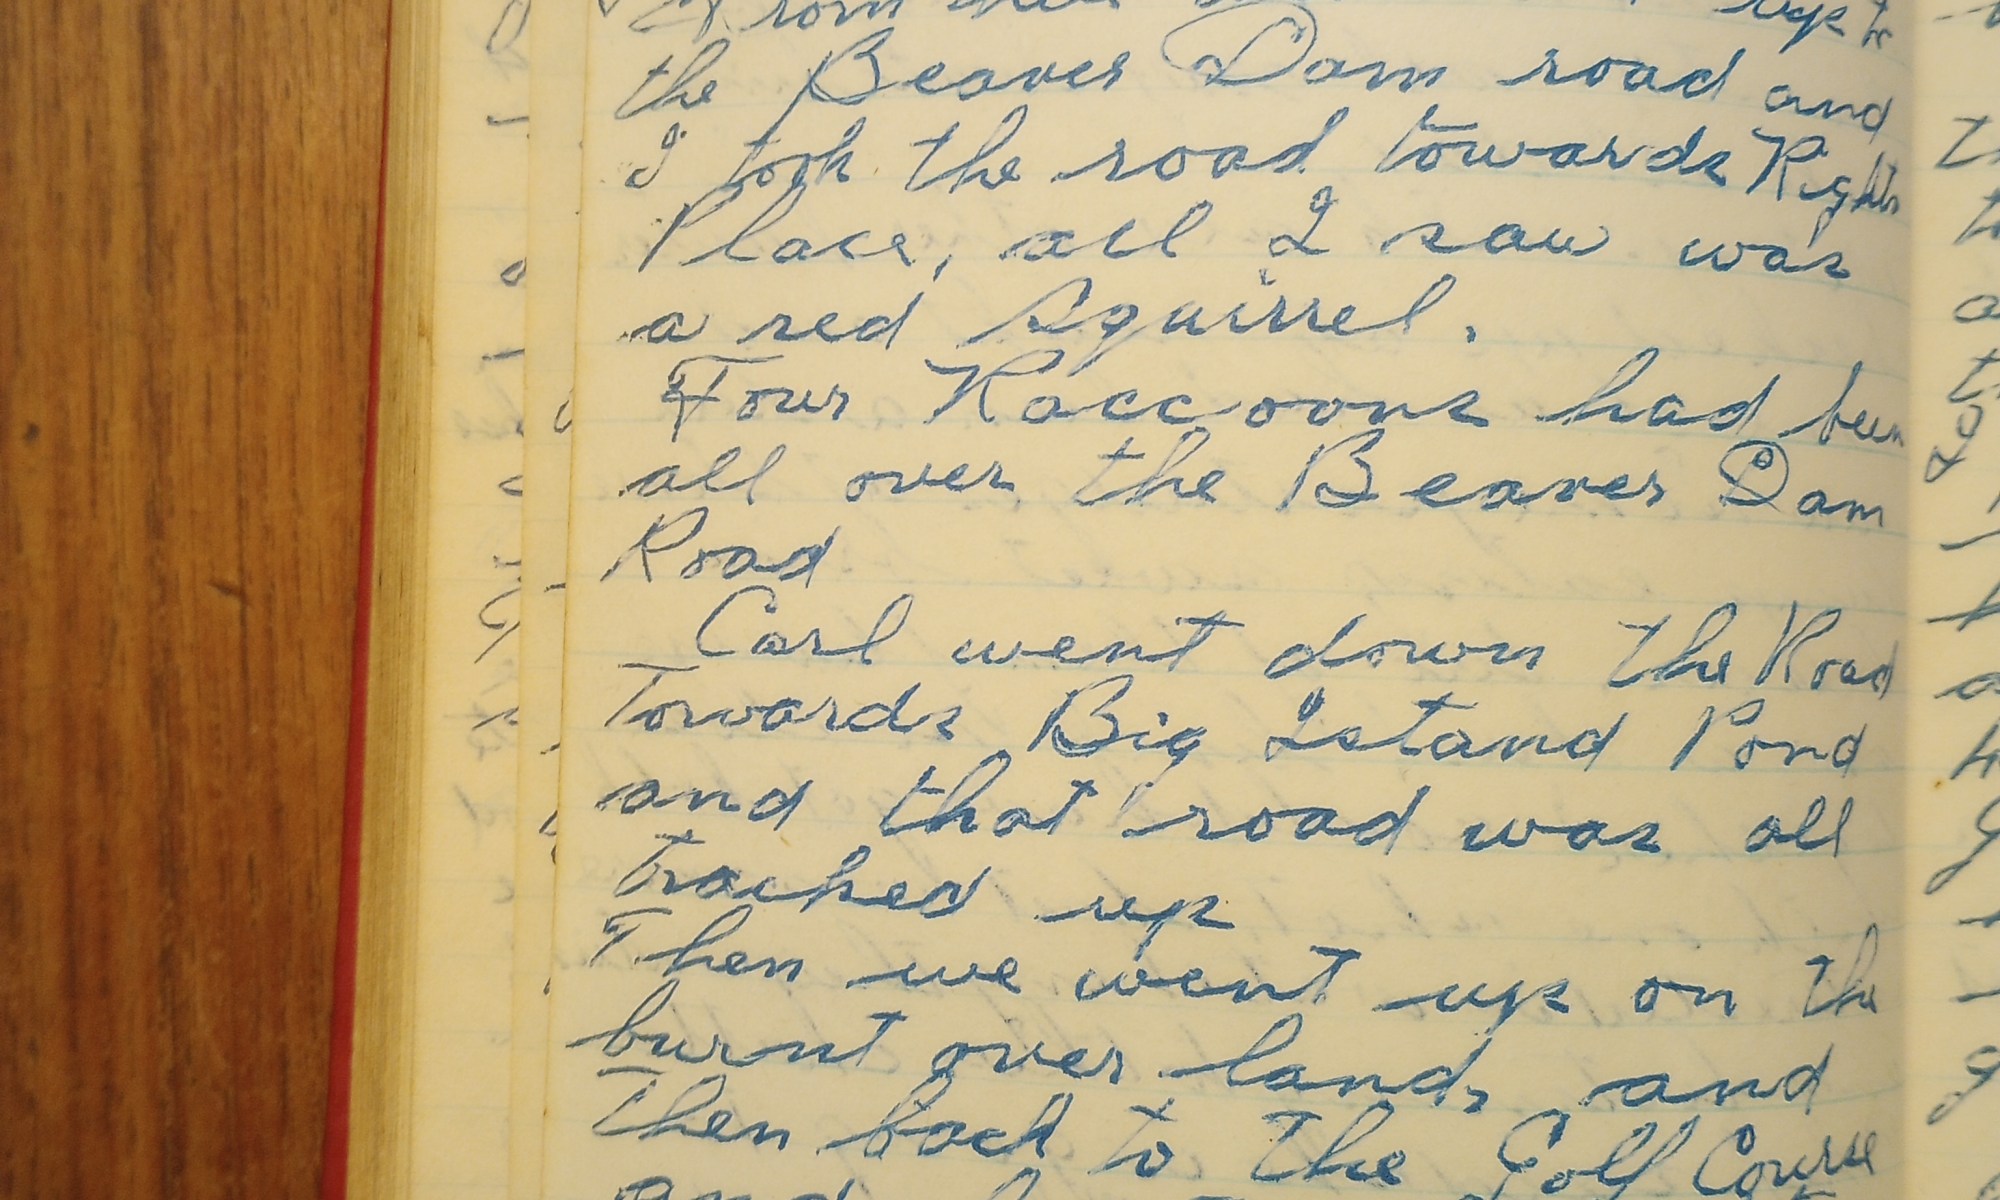 From
the Beaver Dam road and
I took the road towards Rights
Place, all I saw was
a red squirrel.
Four Raccoons had been
all over the Beaver Dam
Road
Carl went down the Road
Towards Big Island Pond
and that road was all
tracked up
Then we went up on the
burnt over land, and
Then back to the Golf Course